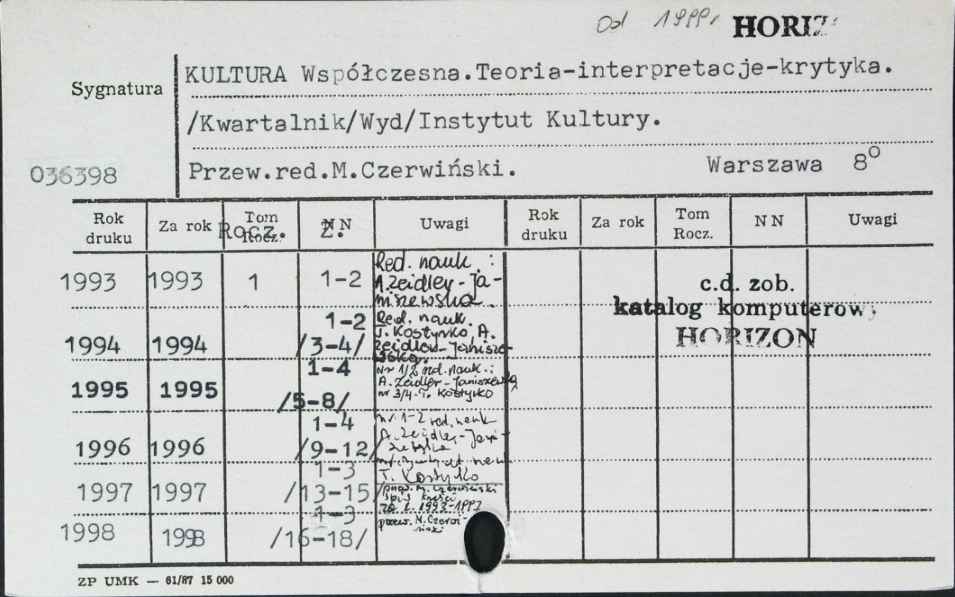 Od 1999r HORIZ
KULTURA Współczesna.Teoria-interpretacje-krytyka.
Sygnatura
/Kwartalnik/Wyd/Instytut Kultury.
036398 Przew.red.M.Czerwiński. Warszawa 8°
Rok druku Za rok Tom Rocz. NN Uwagi Rok druku Za rok Tom Rocz. NN Uwagi
Rocz. Z.
1993 1993 1 1-2 Red. nauk.:
A Zeidler-Ja-
niszewska.
c.d. zob.
katalog komputerowy
HORIZON
1-2 Red. nauk.
1994 1994 /3-4/ T. Kostyrko, A.
Zeidler-Janisze-
wska.
1-4 Nr 1/2 red. nauk.:
1995 1995 /5-8/ A. Zeidler-Janiszewska
nr 3/4-T. Kostyrko
1-4 nr. 1-2 red. nauk
1996 1996 /9-12/ A. Zeidler-Jani-
T. Kostyrko
1-3
1997 1997 /13-15/ przew. M. Czerwiński
spis treści
za l. 1993-1997
1-3
1998 1998 /16-18/ przew. M. Czerw-
iński
ZP UMK — 61/87 15 000